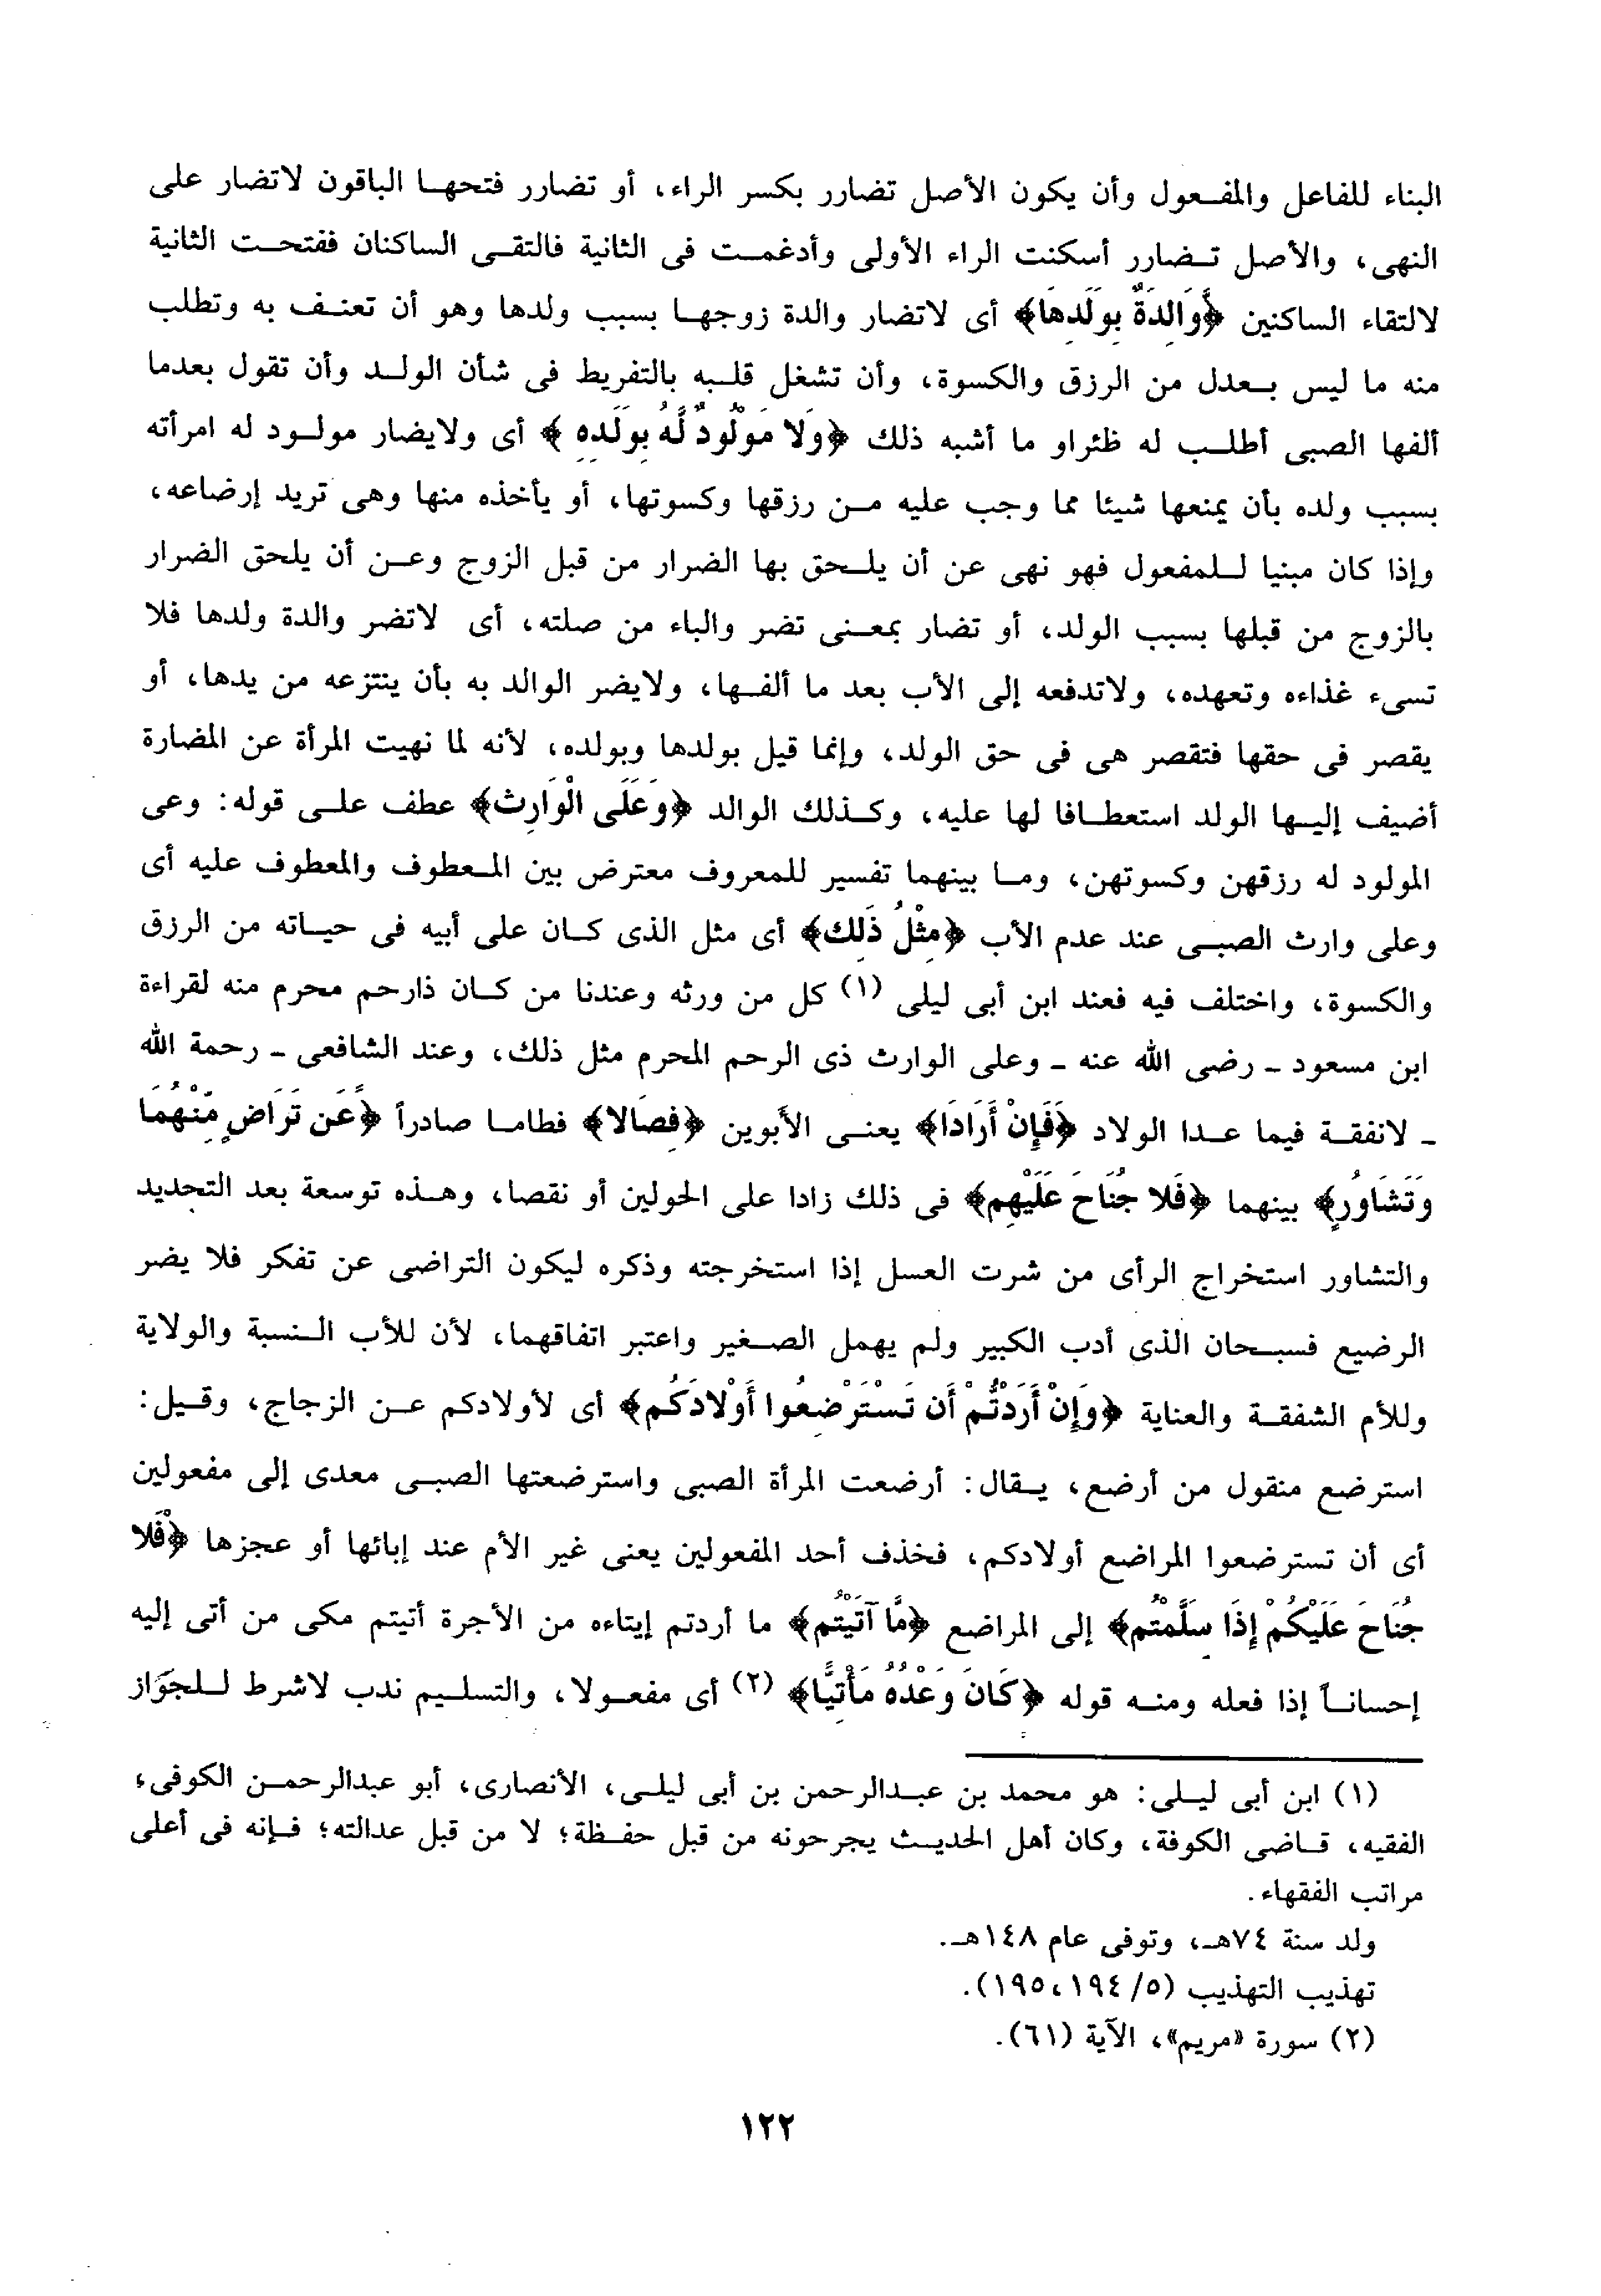 البناء للفاعل والمفعول وأن يكون الأصل تضارر بكسر الراء، أو تضارر فتحها الباقون لاتضار على
النهى، والأصل تضارر أسكنت الراء الأولى وأدغمت فى الثانية فالتقى الساكنان ففتحت الثانية
لالتقاء الساكنين ﴿وَالِدَةٌ بِوَلَدِهَا﴾ أى لاتضار والدة زوجها بسبب ولدها وهو أن تعنف به وتطلب
منه ما ليس بعدل من الرزق والكسوة، وأن تشغل قلبه بالتفريط فى شأن الولد وأن تقول بعدما
ألفها الصبى أطلب له ظئراو ما أشبه ذلك ﴿وَلا مَوْلُودٌ لَّهُ بِوَلَدِهِ﴾ أى ولايضار مولود له امرأته
بسبب ولده بأن يمنعها شيئا مما وجب عليه من رزقها وكسوتها، أو يأخذه منها وهى تريد إرضاعه،
وإذا كان مبنيا للمفعول فهو نهى عن أن يلحق بها الضرار من قبل الزوج وعن أن يلحق الضرار
بالزوج من قبلها بسبب الولد، أو تضار بمعنى تضر والباء من صلته، أى لاتضر والدة ولدها فلا
تسىء غذاءه وتعهده، ولاتدفعه إلى الأب بعد ما ألفها، ولايضر الوالد به بأن ينتزعه من يدها، أو
يقصر فى حقها فتقصر هى فى حق الولد، وإنما قيل بولدها وبولده، لأنه لما نهيت المرأة عن المضارة
أضيف إليها الولد استعطافا لها عليه، وكذلك الوالد ﴿وَعَلَى الْوَارِثِ﴾ عطف على قوله: وعى
المولود له رزقهن وكسوتهن، وما بينهما تفسير للمعروف معترض بين المعطوف والمعطوف عليه أى
وعلى وارث الصبى عند عدم الأب ﴿مِثْلُ ذَلِكَ﴾ أى مثل الذى كان على أبيه فى حياته من الرزق
والكسوة، واختلف فيه فعند ابن أبى ليلى (١) كل من ورثه وعندنا من كان ذارحم محرم منه لقراءة
ابن مسعود - رضى الله عنه - وعلى الوارث ذى الرحم المحرم مثل ذلك، وعند الشافعى - رحمة الله
- لانفقة فيما عدا الولاد ﴿فَإِنْ أَرَادَا﴾ يعنى الأبوين ﴿فِصَالا﴾ فطاما صادراً ﴿عَن تَرَاضٍ مِّنْهُمَا
وَتَشَاوُرٍ﴾ بينهما ﴿فَلا جُنَاحَ عَلَيْهِم﴾ فى ذلك زادا على الحولين أو نقصا، وهذه توسعة بعد التحديد
والتشاور استخراج الرأى من شرت العسل إذا استخرجته وذكره ليكون التراضى عن تفكر فلا يضر
الرضيع فسبحان الذى أدب الكبير ولم يهمل الصغير واعتبر اتفاقهما، لأن للأب النسبة والولاية
وللأم الشفقة والعناية ﴿وَإِنْ أَرَدتُّمْ أَن تَسْتَرْضِعُوا أَوْلادَكُم﴾ أى لأولادكم عن الزجاج، وقيل:
استرضع منقول من أرضع، يقال: أرضعت المرأة الصبى واسترضعتها الصبى معدى إلى مفعولين
أى أن تسترضعوا المراضع أولادكم، فخذف أحد المفعولين يعنى غير الأم عند إبائها أو عجزها ﴿فَلا
جُنَاحَ عَلَيْكُمْ إِذَا سَلَّمْتُم﴾ إلى المراضع ﴿مَّا آتَيْتُم﴾ ما أردتم إيتاءه من الأجرة أتيتم مكى من أتى إليه
إحساناً إذا فعله ومنه قوله ﴿كَانَ وَعْدُهُ مَأْتِيًّا﴾ (٢) أى مفعولا، والتسليم ندب لاشرط للجواز
(١) ابن أبى ليلى: هو محمد بن عبدالرحمن بن أبى ليلى، الأنصارى، أبو عبدالرحمن الكوفى،
الفقيه، قاضى الكوفة، وكان أهل الحديث يجرحونه من قبل حفظة؛ لا من قبل عدالته؛ فإنه فى أعلى
مراتب الفقهاء.
ولد سنة ٧٤هـ، وتوفى عام ١٤٨هـ.
تهذيب التهذيب (٥/ ١٩٤، ١٩٥).
(٢) سورة «مريم»، الآية (٦١).
١٢٢